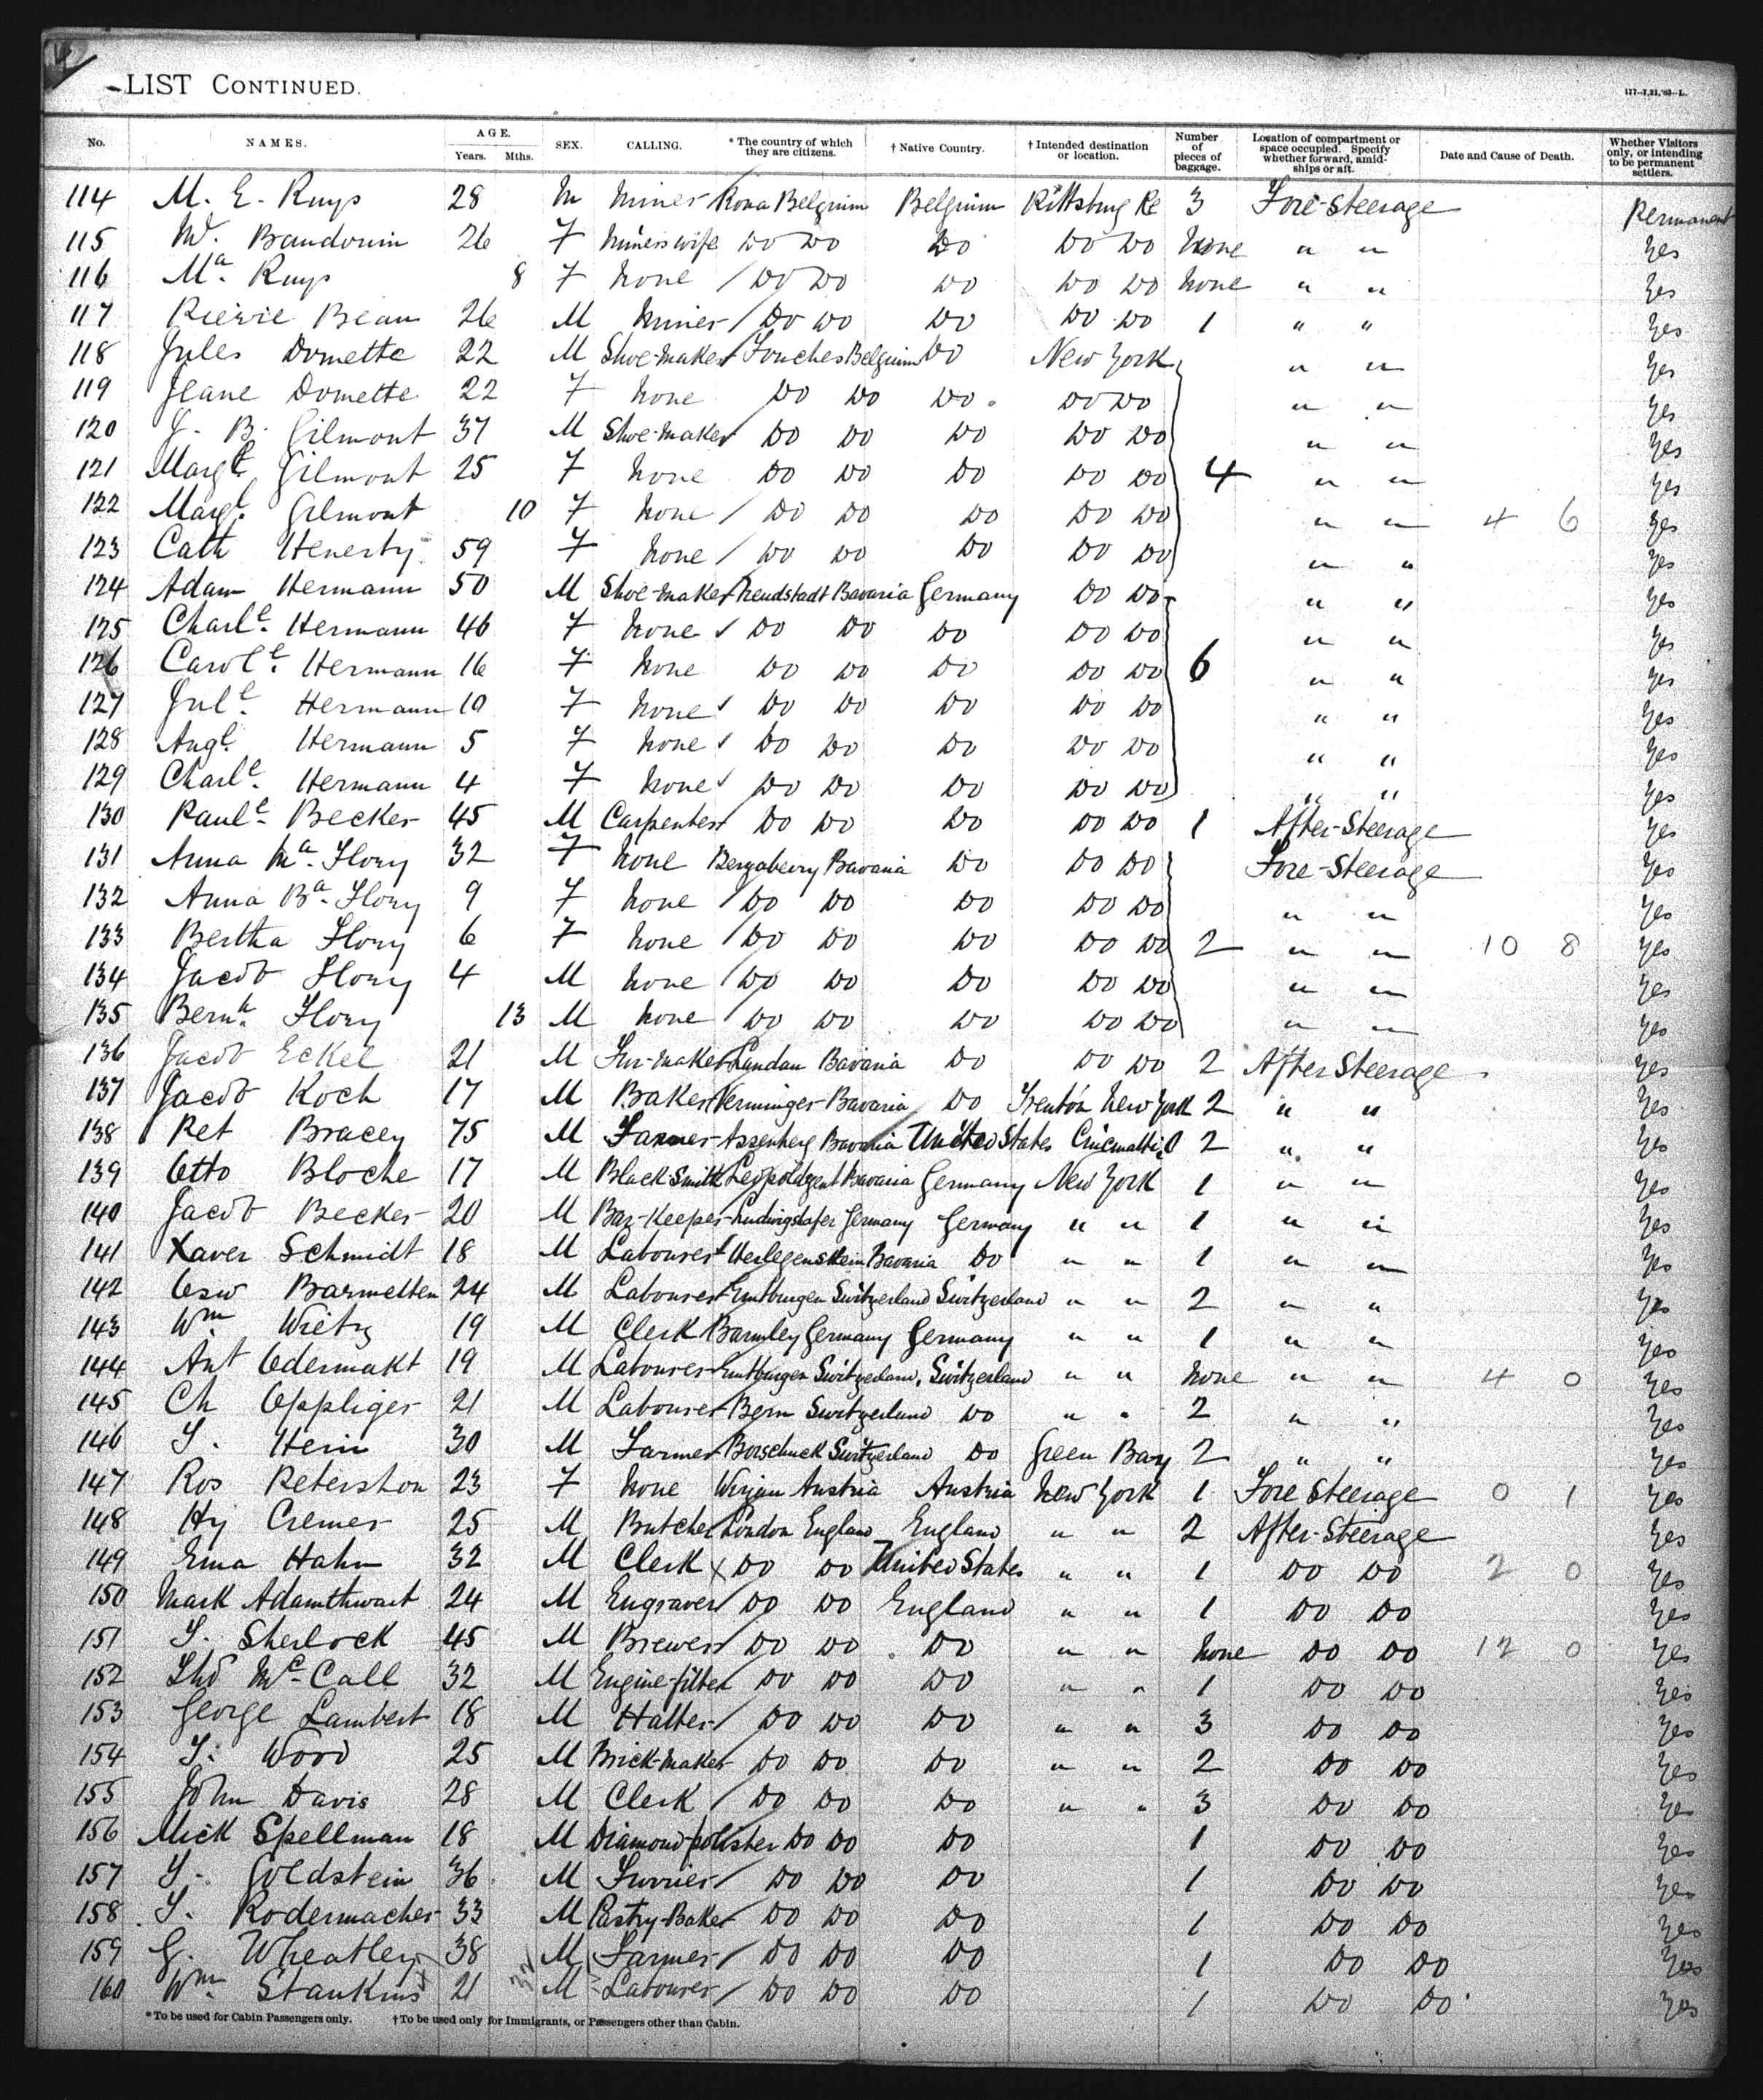 LIST CONTINUED.
177—7,21,'83—L.
No. NAMES. AGE. Years. Mths. SEX. CALLING. * The country of which they are citizens. † Native Country. † Intended destination or location. Number of pieces of baggage. Location of compartment or space occupied. Specify whether forward, amidships or aft. Date and Cause of Death. Whether Visitors only, or intending to be permanent settlers.
114 M. E. Ruys 28 M Miner Belgium Belgium Pittsburg 3 Fore-Steerage Permanent
115 Baudouin 26 F Miners wife Do Do Do Do Do None " " Yes
116 Mª Ruys 8 F None Do Do Do Do Do None " " Yes
117 Pierre Bean 26 M Miner Do Do Do Do Do 1 " " Yes
118 Jules Domette 22 M Shoe-maker Belgium Do New York " " Yes
119 Jeane Domette 22 F None Do Do Do Do Do " " Yes
120 J. B. Gilmont 37 M Shoe-maker Do Do Do Do Do " " Yes
121 Margt Gilmont 25 F None Do Do Do Do Do 4 " " Yes
122 Margt. Gilmont 10 F None Do Do Do Do Do " " 4 6 Yes
123 Cath 59 F None Do Do Do Do Do " " Yes
124 Adam Hermann 50 M Shoe-maker Neudstadt Bavaria Germany Do Do " " Yes
125 Charle. Hermann 46 F None Do Do Do Do Do " " Yes
126 Carole. Hermann 16 F None Do Do Do Do Do 6 " " Yes
127 Jule. Hermann 10 F None Do Do Do Do Do " " Yes
128 Augt. Hermann 5 F None Do Do Do Do Do " " Yes
129 Charle. Hermann 4 F None Do Do Do Do Do " " Yes
130 Paule Becker 45 M Carpenter Do Do Do Do Do 1 After-Steerage Yes
131 Anna Mª Flory 32 F None Bavaria Do Do Do Fore-Steerage Yes
132 Anna Bª Flory 9 F None Do Do Do Do Do " " Yes
133 Bertha Flory 6 F None Do Do Do Do Do 2 " " 10 8 Yes
134 Jacob Flory 4 M None Do Do Do Do Do " " Yes
135 Bernh. Flory 13 M None Do Do Do Do Do " " Yes
136 Jacob Eckel 21 M Landau Bavaria Do Do Do 2 After Steerage Yes
137 Jacob Koch 17 M Baker Bavaria Do Trenton New York 2 " " Yes
138 Pet Bracey 75 M Farmer Bavaria United States Cincinatti O 2 " " Yes
139 Otto Bloche 17 M Black-Smith Bavaria Germany New York 1 " " Yes
140 Jacob Becker 20 M Bar-Keeper Ludwigshafer Germany Germany " " 1 " " Yes
141 Xaver Schmidt 18 M Labourer Bavaria Do " " 1 " " Yes
142 Osw Barmetten 24 M Labourer Switzerland Switzerland " " 2 " " Yes
143 Wm Wietz 19 M Clerk Germany Germany " " 1 " " Yes
144 Ant Odermakt 19 M Labourer Switzerland. Switzerland " " None " " 4 0 Yes
145 Ch Oppliger 21 M Labourer Bern Switzerland Do " " 2 " " Yes
146 Hein 30 M Farmer Switzerland Do Green Bay 2 " " Yes
147 Ros Petershon 23 F None Austria Austria New York 1 Fore Steerage 0 1 Yes
148 Hy Cremer 25 M Butcher London England England " " 2 After-Steerage Yes
149 Hahn 32 M Clerk X Do Do United States " " 1 Do Do 2 0 Yes
150 Mark Adamthwait 24 M Engraver Do Do England " " 1 Do Do Yes
151 Sherlock 45 M Brewer Do Do Do " " None Do Do 12 0 Yes
152 Thos McCall 32 M Engine-fitter Do Do Do " " 1 Do Do Yes
153 George Lambert 18 M Hatter Do Do Do " " 3 Do Do Yes
154 Wood 25 M Brick-maker Do Do Do " " 2 Do Do Yes
155 John Davis 28 M Clerk Do Do Do " " 3 Do Do Yes
156 Mick Spellman 18 M Diamond-polisher Do Do Do 1 Do Do Yes
157 Goldstein 36 M Furrier Do Do Do 1 Do Do Yes
158 Rodermacher 33 M Pastry-Baker Do Do Do 1 Do Do Yes
159 G. Wheatley 38 M Farmer Do Do Do 1 Do Do Yes
160 Wm. Stankins 21 M Labourer Do Do Do 1 Do Do Yes
*To be used for Cabin Passengers only. †To be used only for Immigrants, or Passengers other than Cabin.